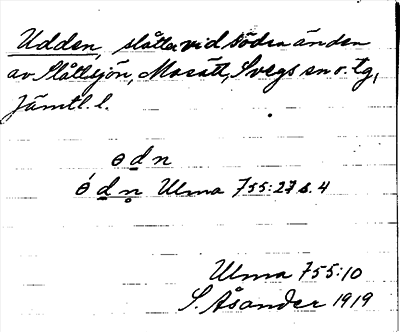 Udden, slåtter vid södra änden
av Slåttsjön, Mosätt, Svegs sn o. tg,
Jämtl. l.
ɵ d n
ɵ́ d n̥ Ulma 755:27 s. 4
Ulma 755:10
S. Åsander 1919